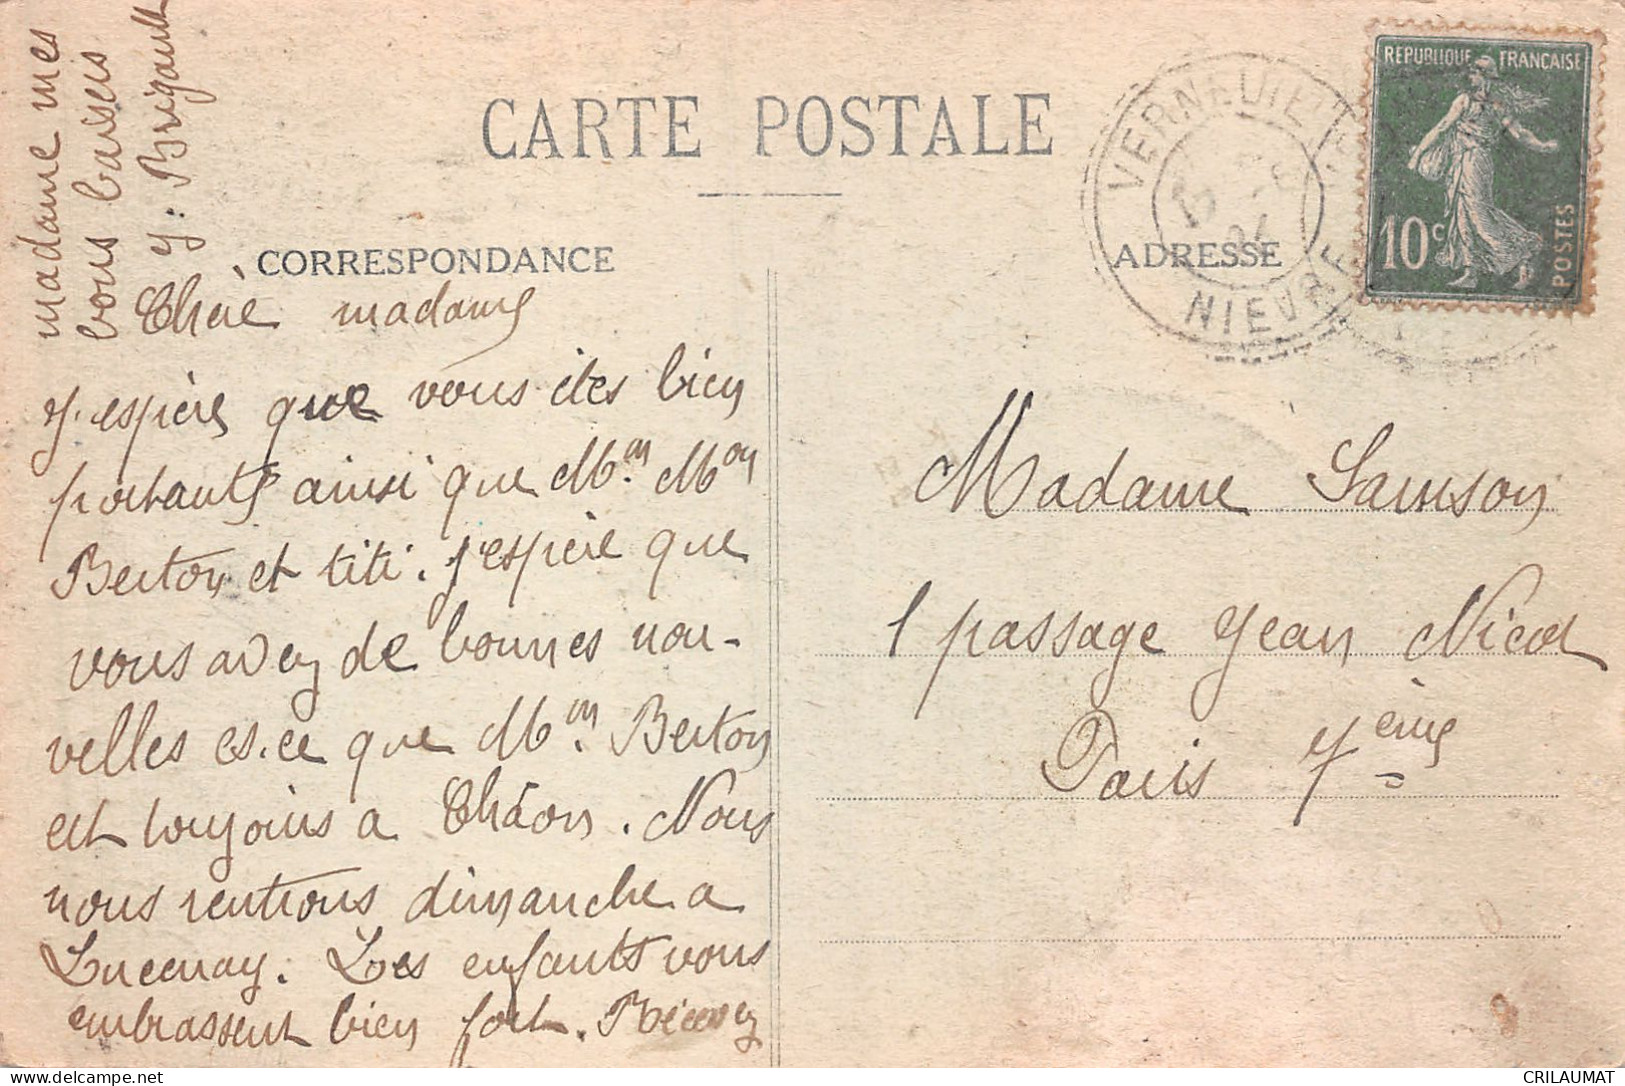 CARTE POSTALE
CORRESPONDANCE
ADRESSE
REPUBLIQUE FRANÇAISE
10c
POSTES
VERNEUIL
NIEVRE
Chère madame
J'espère que vous êtes bien
portante ainsi que Mm. Mon
Berton et titi. J'espère que
vous avez de bonnes nou-
velles es-ce que Mm. Berton
est toujours a Théon. Nous
nous rentrons dimanche a
Lucenay. Les enfants vous
embrassent bien fort. Recevez
madame mes
bons baisers
Y. Brigault
Madame Samson
1 passage Jean Nicot
Paris 7ème
CRILAUMAT